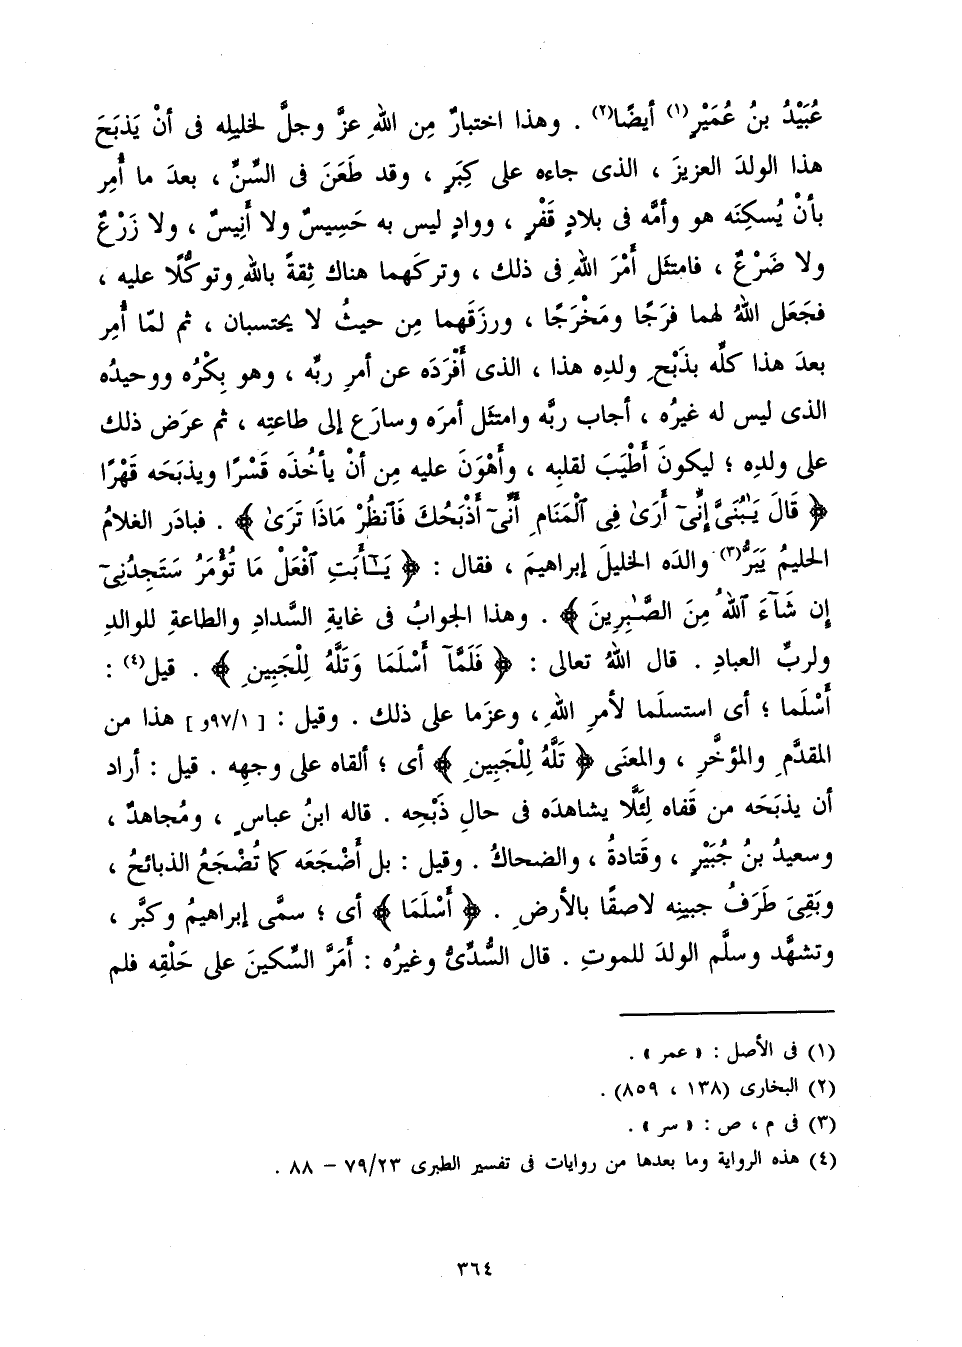 عُبَيْدُ بنُ عُمَيْرٍ(١) أيضًا(٢) . وهذا اختبارٌ مِن اللهِ عزَّ وجلَّ لخليلِه فى أنْ يَذبَحَ
هذا الولدَ العزيزَ ، الذى جاءه على كِبَرٍ ، وقد طَعَنَ فى السِّنِّ ، بعدَ ما أُمِر
بأنْ يُسكِنَه هو وأمَّه فى بلادٍ قَفْرٍ ، ووادٍ ليس به حَسِيسٌ ولا أَنِيسٌ ، ولا زَرْعٌ
ولا ضَرْعٌ ، فامتثَل أَمْرَ اللهِ فى ذلك ، وتركَهما هناك ثِقةً باللهِ وتوكُّلًا عليه ،
فجَعَل اللهُ لهما فرَجًا ومَخْرَجًا ، ورزَقَهما مِن حيثُ لا يحتسبان ، ثم لمّا أُمِر
بعدَ هذا كلِّه بذَبْحِ ولدِه هذا ، الذى أَفْرَدَه عن أمرِ ربِّه ، وهو بِكْرُه ووحيدُه
الذى ليس له غيرُه ، أجاب ربَّه وامتثَل أمرَه وسارَع إلى طاعتِه ، ثم عرَض ذلك
على ولدِه ؛ ليكونَ أَطْيَبَ لقلبِه ، وأَهْوَنَ عليه مِن أنْ يأخُذَه قَسْرًا ويذبَحَه قَهْرًا
﴿ قَالَ يَٰبُنَىَّ إِنِّىٓ أَرَىٰ فِى ٱلْمَنَامِ أَنِّىٓ أَذْبَحُكَ فَٱنظُرْ مَاذَا تَرَىٰ ﴾ . فبادَر الغلامُ
الحليمُ يَبَرُّ(٣) والدَه الخليلَ إبراهيمَ ، فقال : ﴿ يَٰٓأَبَتِ ٱفْعَلْ مَا تُؤْمَرُ سَتَجِدُنِىٓ
إِن شَآءَ ٱللهُ مِنَ الصَّٰبِرِينَ ﴾ . وهذا الجوابُ فى غايةِ السَّدادِ والطاعةِ للوالدِ
ولربِّ العبادِ . قال اللهُ تعالى : ﴿ فَلَمَّآ أَسْلَمَا وَتَلَّهُ لِلْجَبِينِ ﴾ . قيل(٤) :
أَسْلَما ؛ أى استسلَما لأمرِ اللهِ ، وعزَما على ذلك . وقيل : [ ٩٧/١و ] هذا من
المقدَّمِ والمؤخَّرِ ، والمعنَى ﴿ تَلَّهُ لِلْجَبِينِ ﴾ أى ؛ ألقاه على وجهِه . قيل : أراد
أن يذبَحَه من قَفاه لِئَلَّا يشاهدَه فى حالِ ذَبْحِه . قاله ابنُ عباسٍ ، ومُجاهدٌ ،
وسعيدُ بنُ جُبَيْرٍ ، وقَتادةُ ، والضحاكُ . وقيل : بل أَضْجَعَه كما تُضْجَعُ الذبائحُ ،
وبَقِىَ طَرَفُ جبينِه لاصقًا بالأرضِ . ﴿ أَسْلَمَا ﴾ أى ؛ سمَّى إبراهيمُ وكبَّر ،
وتشهَّد وسلَّم الولدَ للموتِ . قال السُّدِّىُّ وغيرُه : أَمَرَّ السِّكينَ على حَلْقِه فلم
(١) فى الأصل : « عمر » .
(٢) البخارى (١٣٨ ، ٨٥٩) .
(٣) فى م ، ص : « سر » .
(٤) هذه الرواية وما بعدها من روايات فى تفسير الطبرى ٧٩/٢٣ – ٨٨ .
٣٦٤